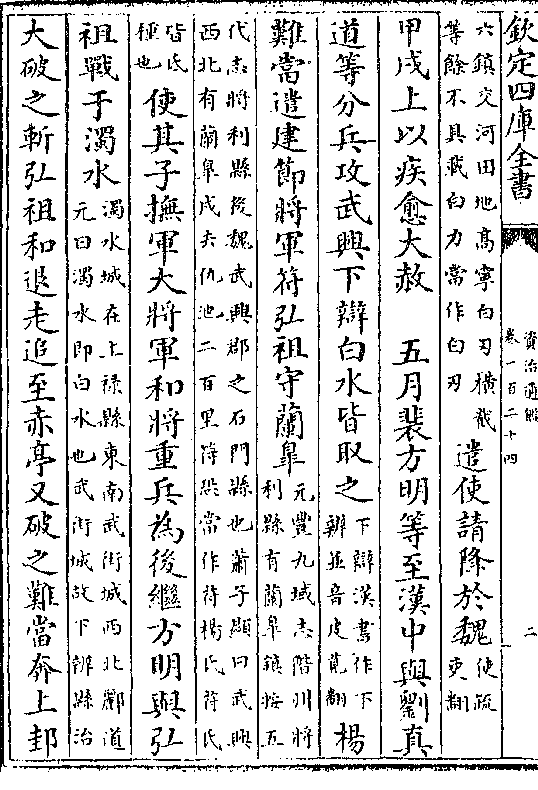 欽定四庫全書
資治通鑑
卷一百二十四
二
六鎮交河田地高寧白刃橫截
等餘不具載白力當作白刃
遣使請降於魏
使疏
吏翻
甲戌上以疾愈大赦　五月裴方明等至漢中與劉真
道等分兵攻武興下辯白水皆取之
下辯漢書作下
辨並音皮莧翻
楊
難當遣建節將軍符弘祖守蘭臯
元豐九域志階州將
利縣有蘭臯鎮按五
代志將利縣後魏武興郡之石門縣也蕭子顯曰武興
西北有蘭臯戍去仇池二百里符㳟當作苻楊氏苻氏
皆氐
種也
使其子撫軍大將軍和將重兵為後繼方明與弘
祖戰于濁水
濁水城在上祿縣東南武街城西北酈道
元曰濁水即白水也武街城故下辨縣治
大破之斬弘祖和退走追至赤亭又破之難當奔上邽